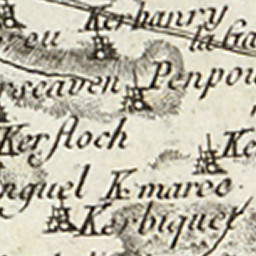 Kerhanry
rou
la Ga
rscaven Penpou
Kerfloch
Ke
nguel K. mareo.
Kerbiquet